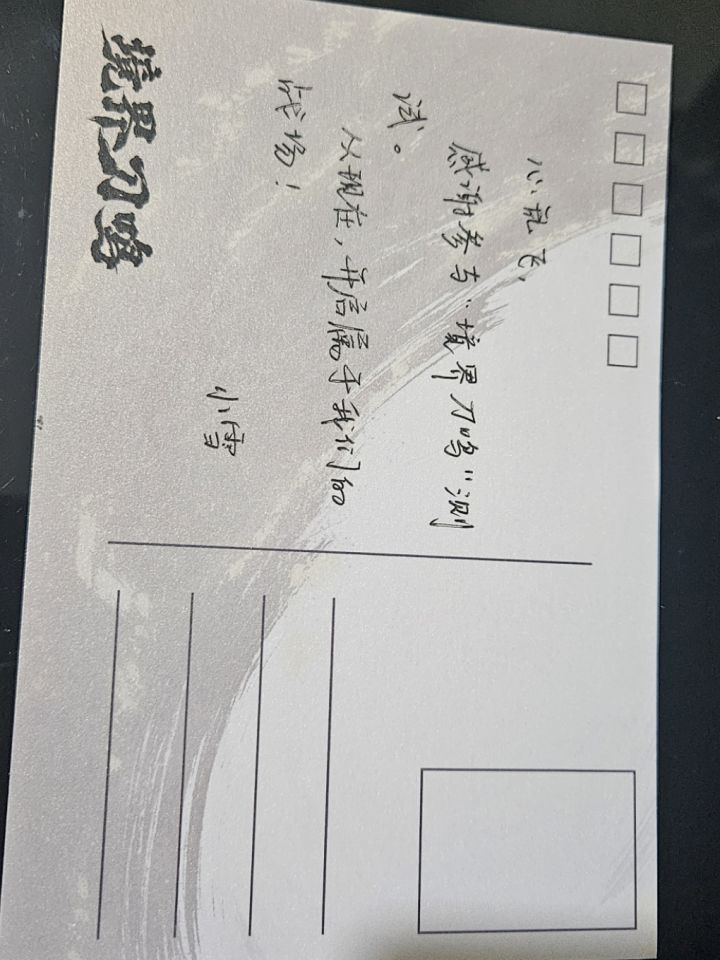 心航飞,
感谢参与“境界刀鸣”测
试。
以现在,开启属于我们的
战场!
小雪
境界刀鸣